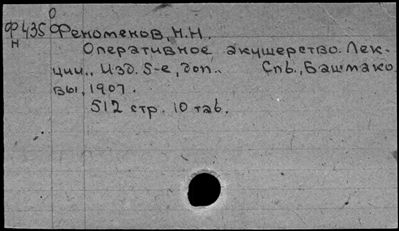 Ф435 Феноменов, Н.Н.
Н
Оперативное акушерство. Лек-
ции.. Изд. 5-е, доп.. Спб., Башмако
вы, 1907.
512 стр. 10 таб.